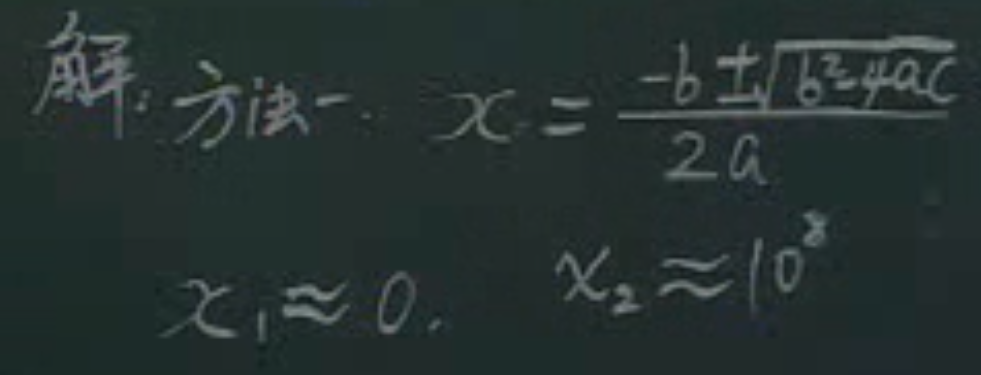 解:方法一. x = \frac{-b ± \sqrt{b²-4ac}}{2a}
x₁≈0. x₂≈10⁸